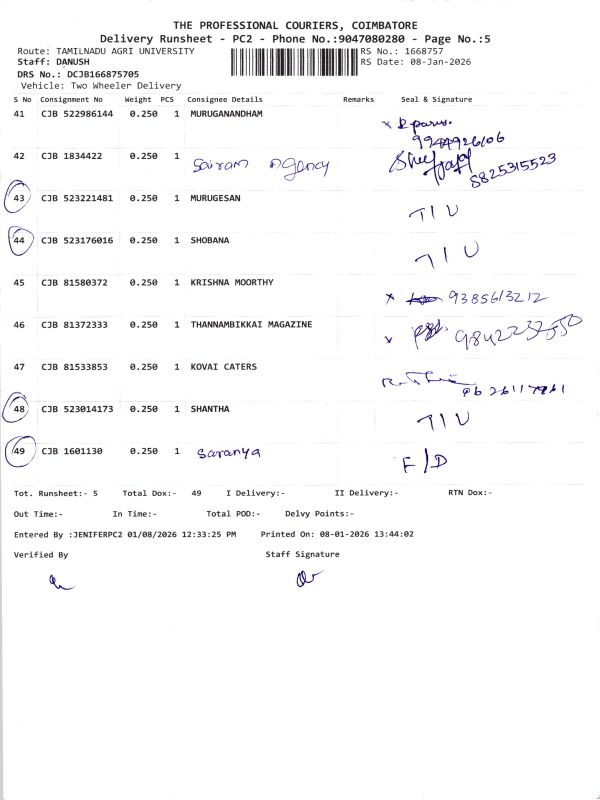 THE PROFESSIONAL COURIERS, COIMBATORE
Delivery Runsheet - PC2 - Phone No.:9047080280 - Page No.:5
Route: TAMILNADU AGRI UNIVERSITY RS No.: 1668757
Staff: DANUSH RS Date: 08-Jan-2026
DRS No.: DCJB166875705
Vehicle: Two Wheeler Delivery
S No Consignment No Weight PCS Consignee Details Remarks Seal & Signature
41 CJB 522986144 0.250 1 MURUGANANDHAM
9244926106
42 CJB 1834422 0.250 1 Sairam Agency
8825315523
43 CJB 523221481 0.250 1 MURUGESAN T I U
44 CJB 523176016 0.250 1 SHOBANA T I U
45 CJB 81580372 0.250 1 KRISHNA MOORTHY
x 9385613212
46 CJB 81372333 0.250 1 THANNAMBIKKAI MAGAZINE
x
47 CJB 81533853 0.250 1 KOVAI CATERS
48 CJB 523014173 0.250 1 SHANTHA T I U
49 CJB 1601130 0.250 1 Saranya F/D
Tot. Runsheet:- 5 Total Dox:- 49 I Delivery:- II Delivery:- RTN Dox:-
Out Time:- In Time:- Total POD:- Delvy Points:-
Entered By :JENIFERPC2 01/08/2026 12:33:25 PM Printed On: 08-01-2026 13:44:02
Verified By Staff Signature